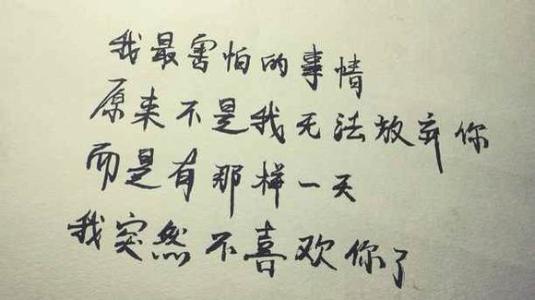 我最害怕的事情
原来不是我无法放弃你
而是有那样一天
我突然不喜欢你了